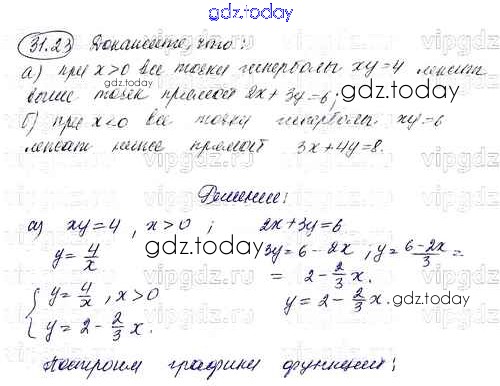 gdz.today
31.23 Докажите, что:
а) при x>0 все точки гиперболы xy=4 лежат
выше точек прямой 2x+3y=6;
б) при x<0 все точки гиперболы xy=6
лежат ниже прямой 3x+4y=8.
Решение:
а) xy=4, x>0; 2x+3y=6
y=4/x 3y=6-2x; y=(6-2x)/3=
= 2-2/3x.
{ y=4/x, x>0 y=2-2/3x.
y=2-2/3x.
Построим графики функций: